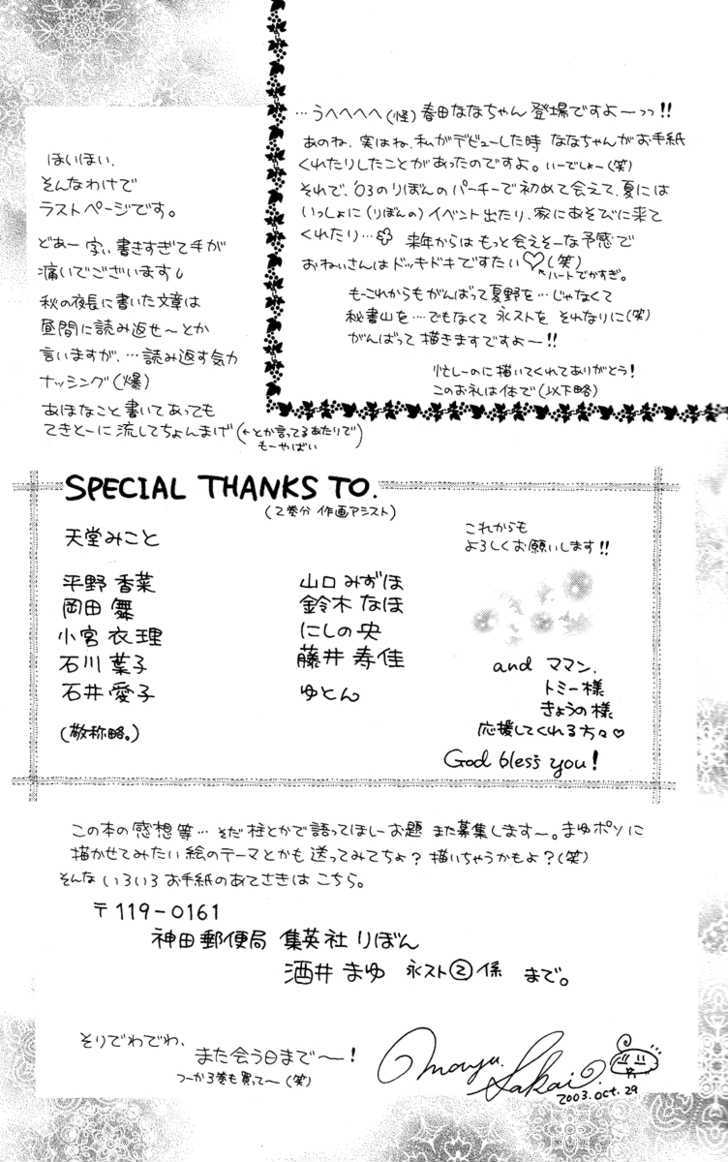 …うへへへへ(怪)春田ななちゃん登場ですよーっっ!!
あのね、実はね、私がデビューした時 ななちゃんがお手紙
くれたりしたことがあったのですよ。いーでしょー(笑)
それで、'03のりぼんのパーチーで初めて会えて、夏には
いっしょに(りぼんの)イベント出たり、家にあそびに来て
くれたり… 来年からはもっと会えそーな予感で
おねいさんはドッキドキですたい♡(笑)
↖ハートでかすぎ。
もーこれからもがんばって夏野を…じゃなくて
秘書山を…でもなくて 永ストを それなりに(笑)
がんばって描きますですよー!!
忙しーのに描いてくれてありがとう!
このお礼は体で(以下略)
ほいほい、
そんなわけで
ラストページです。
どあー字ぃ書きすぎて手が
痛いでございます
秋の夜長に書いた文章は
昼間に読み返せ〜とか
言いますが、…読み返す気力
ナッシング(爆)
あほなこと書いてあっても
てきとーに流してちょんまげ(←とか言ってるあたりで
もーやばい)
SPECIAL THANKS TO.
(2巻分 作画アシスト)
天堂みこと
平野 香菜
岡田 舞
小宮 衣理
石川 葉子
石井 愛子
(敬称略。)
山口 みずほ
鈴木 なほ
にしの 央
藤井 寿佳
ゆとん
これからも
よろしくお願いします!!
and ママン、
トミー様
きょうの様
応援してくれる方々♡
God bless you!
この本の感想等…そだ 柱とかで語ってほしーお題 また募集します〜。まゆポンに
描かせてみたい絵のテーマとかも送ってみてちょ?描いちゃうかもよ?(笑)
そんな いろいろ お手紙のあてさきは こちら。
〒119-0161
神田郵便局 集英社 りぼん
酒井 まゆ 永スト②係 まで。
そりでわでわ、
また会う日まで〜!
つーか3巻も買って〜(笑)
Mayu Sakai
2003.oct.29